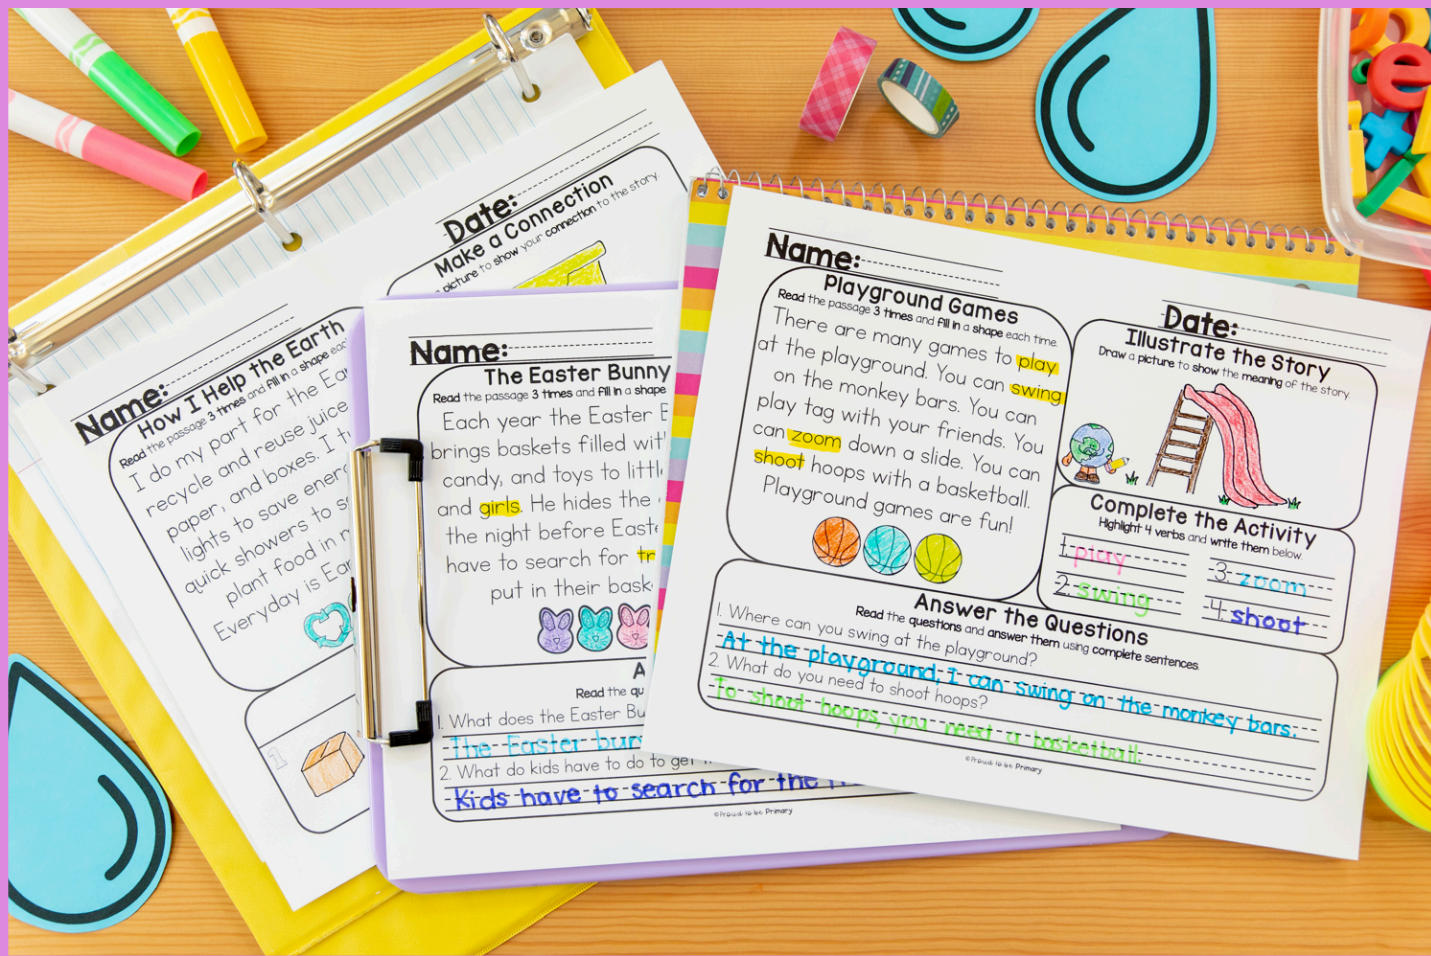 Name:
How I Help the Earth
Read the passage 3 times and fill in a shape
I do my part for the
recycle and reuse juice
paper, and boxes. I
lights to save
quick showers to
plant food in
Everyday is
1
Date:
Make a Connection
picture to show your connection to the story.
Name:
The Easter Bunny
Read the passage 3 times and fill in a shape
Each year the Easter
brings baskets filled
candy, and toys to
and girls. He hides the
the night before
have to search for
put in their
Read the
1. What does the Easter
The Easter
2. What do kids have to do to get
Kids have to search for the
©Proud to be Primary
Name:
Playground Games
Read the passage 3 times and fill in a shape each time.
There are many games to play
at the playground. You can swing
on the monkey bars. You can
play tag with your friends. You
can zoom down a slide. You can
shoot hoops with a basketball.
Playground games are fun!
Date:
Illustrate the Story
Draw a picture to show the meaning of the story.
Complete the Activity
Highlight 4 verbs and write them below.
1. play
2. swing
3. zoom
4. shoot
Answer the Questions
Read the questions and answer them using complete sentences.
1. Where can you swing at the playground?
At the playground, I can swing on the monkey bars.
2. What do you need to shoot hoops?
To shoot hoops, you need a basketball.
©Proud to be Primary